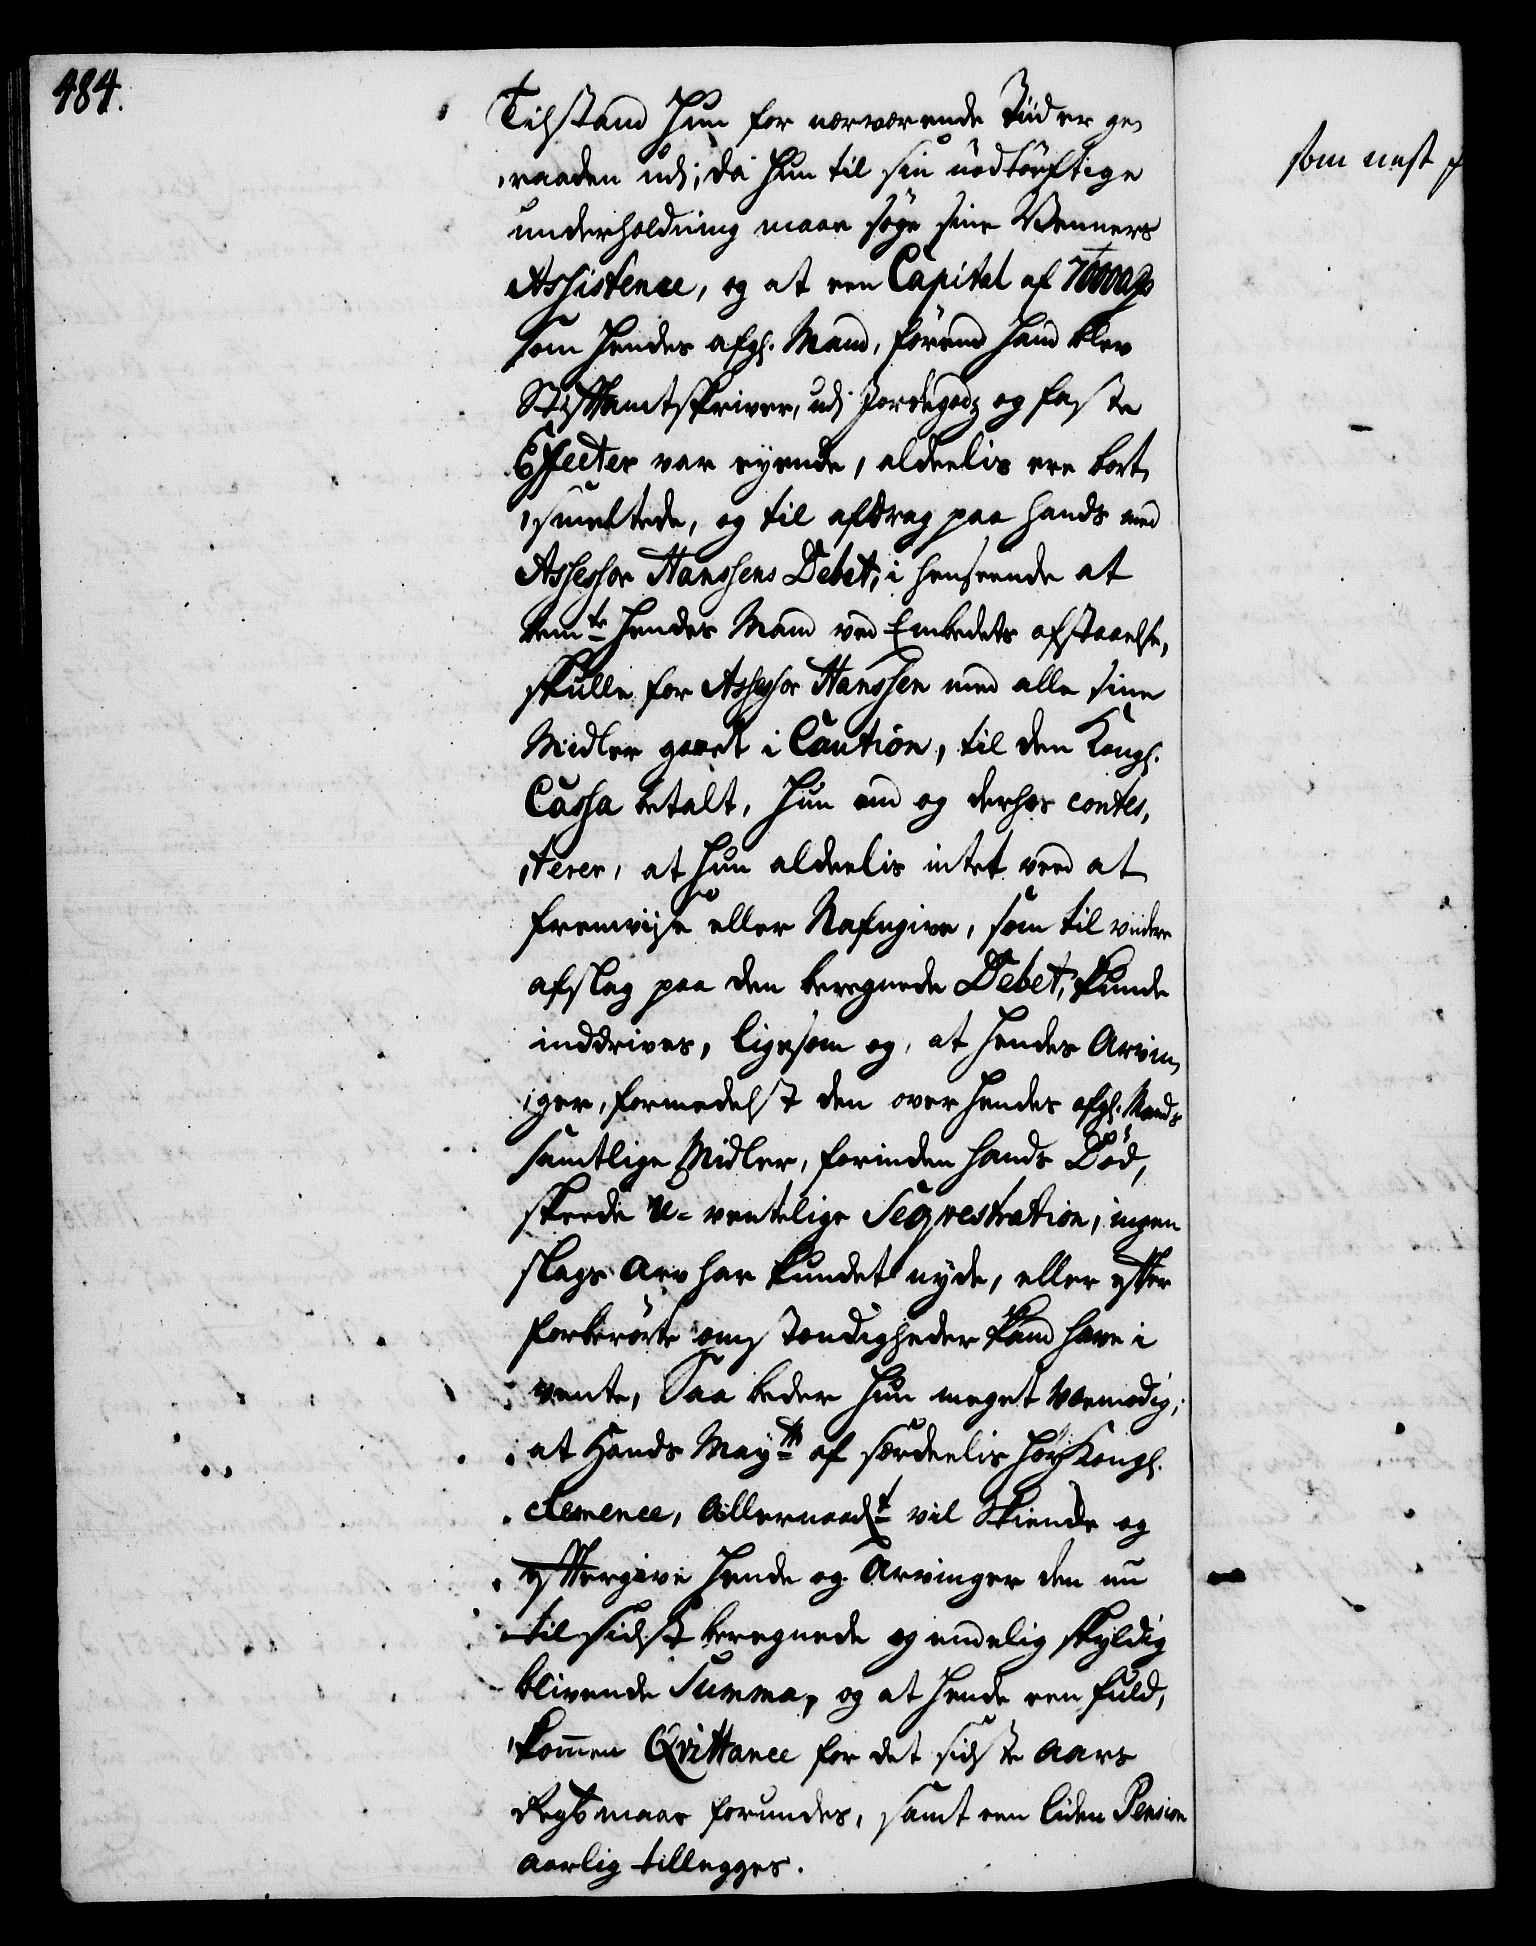 484.
Tilstand Hun for nærværende Tiid er ge,
,raaden udj; da Hun til sin nödtörftige
underholdning maae söge sine Venners
Assistence, og at een Capital af 7000 Rd
som Hendes afgl. Mand, förend Hand blev
Stiftamtskriver, udj Jordegodz og faste
Effecter var eyende, aldeelis ere bort,
,smeltede, og til afdrag paa hands med
Assessor Hanssens Debet, i henseende at
bemte Hendes Mand ved Embedets afstaaelse,
skulle for Assessor Hanssen med alle sine
Midler gaaet i Caution, til den Kongl.
Cassa betalt, Hun end og derhos contes,
,terer, at Hun aldeelis intet veed at
fremviise eller Nafngive, som til viidere
afslag paa den beregnede Debet, kunde
inddrives, ligesom og, at Hendes Arvin,
,ger, formedelst den over Hendes afgl. Mands
samtlige Midler, forinden hands Död,
skeede U-ventelige Seqvestration, ingen
slags Arv har kundet nyde, eller efter
forberörte omstændigheder kand have i
vente, Saa beder Hun meget Veemodig,
at Hands Maytt af særdeelis höy Kongl.
Clemence, Allernaadt vil Skiende og
eftergive Hende og Arvinger den nu
til sidst beregnede og endelig skyldig
blivende Summa, og at Hende een fuld,
,kommen Qvittance for det sidste Aars
Regb maae forundes, samt een liden Pension
aarlig tillegges.
som nest